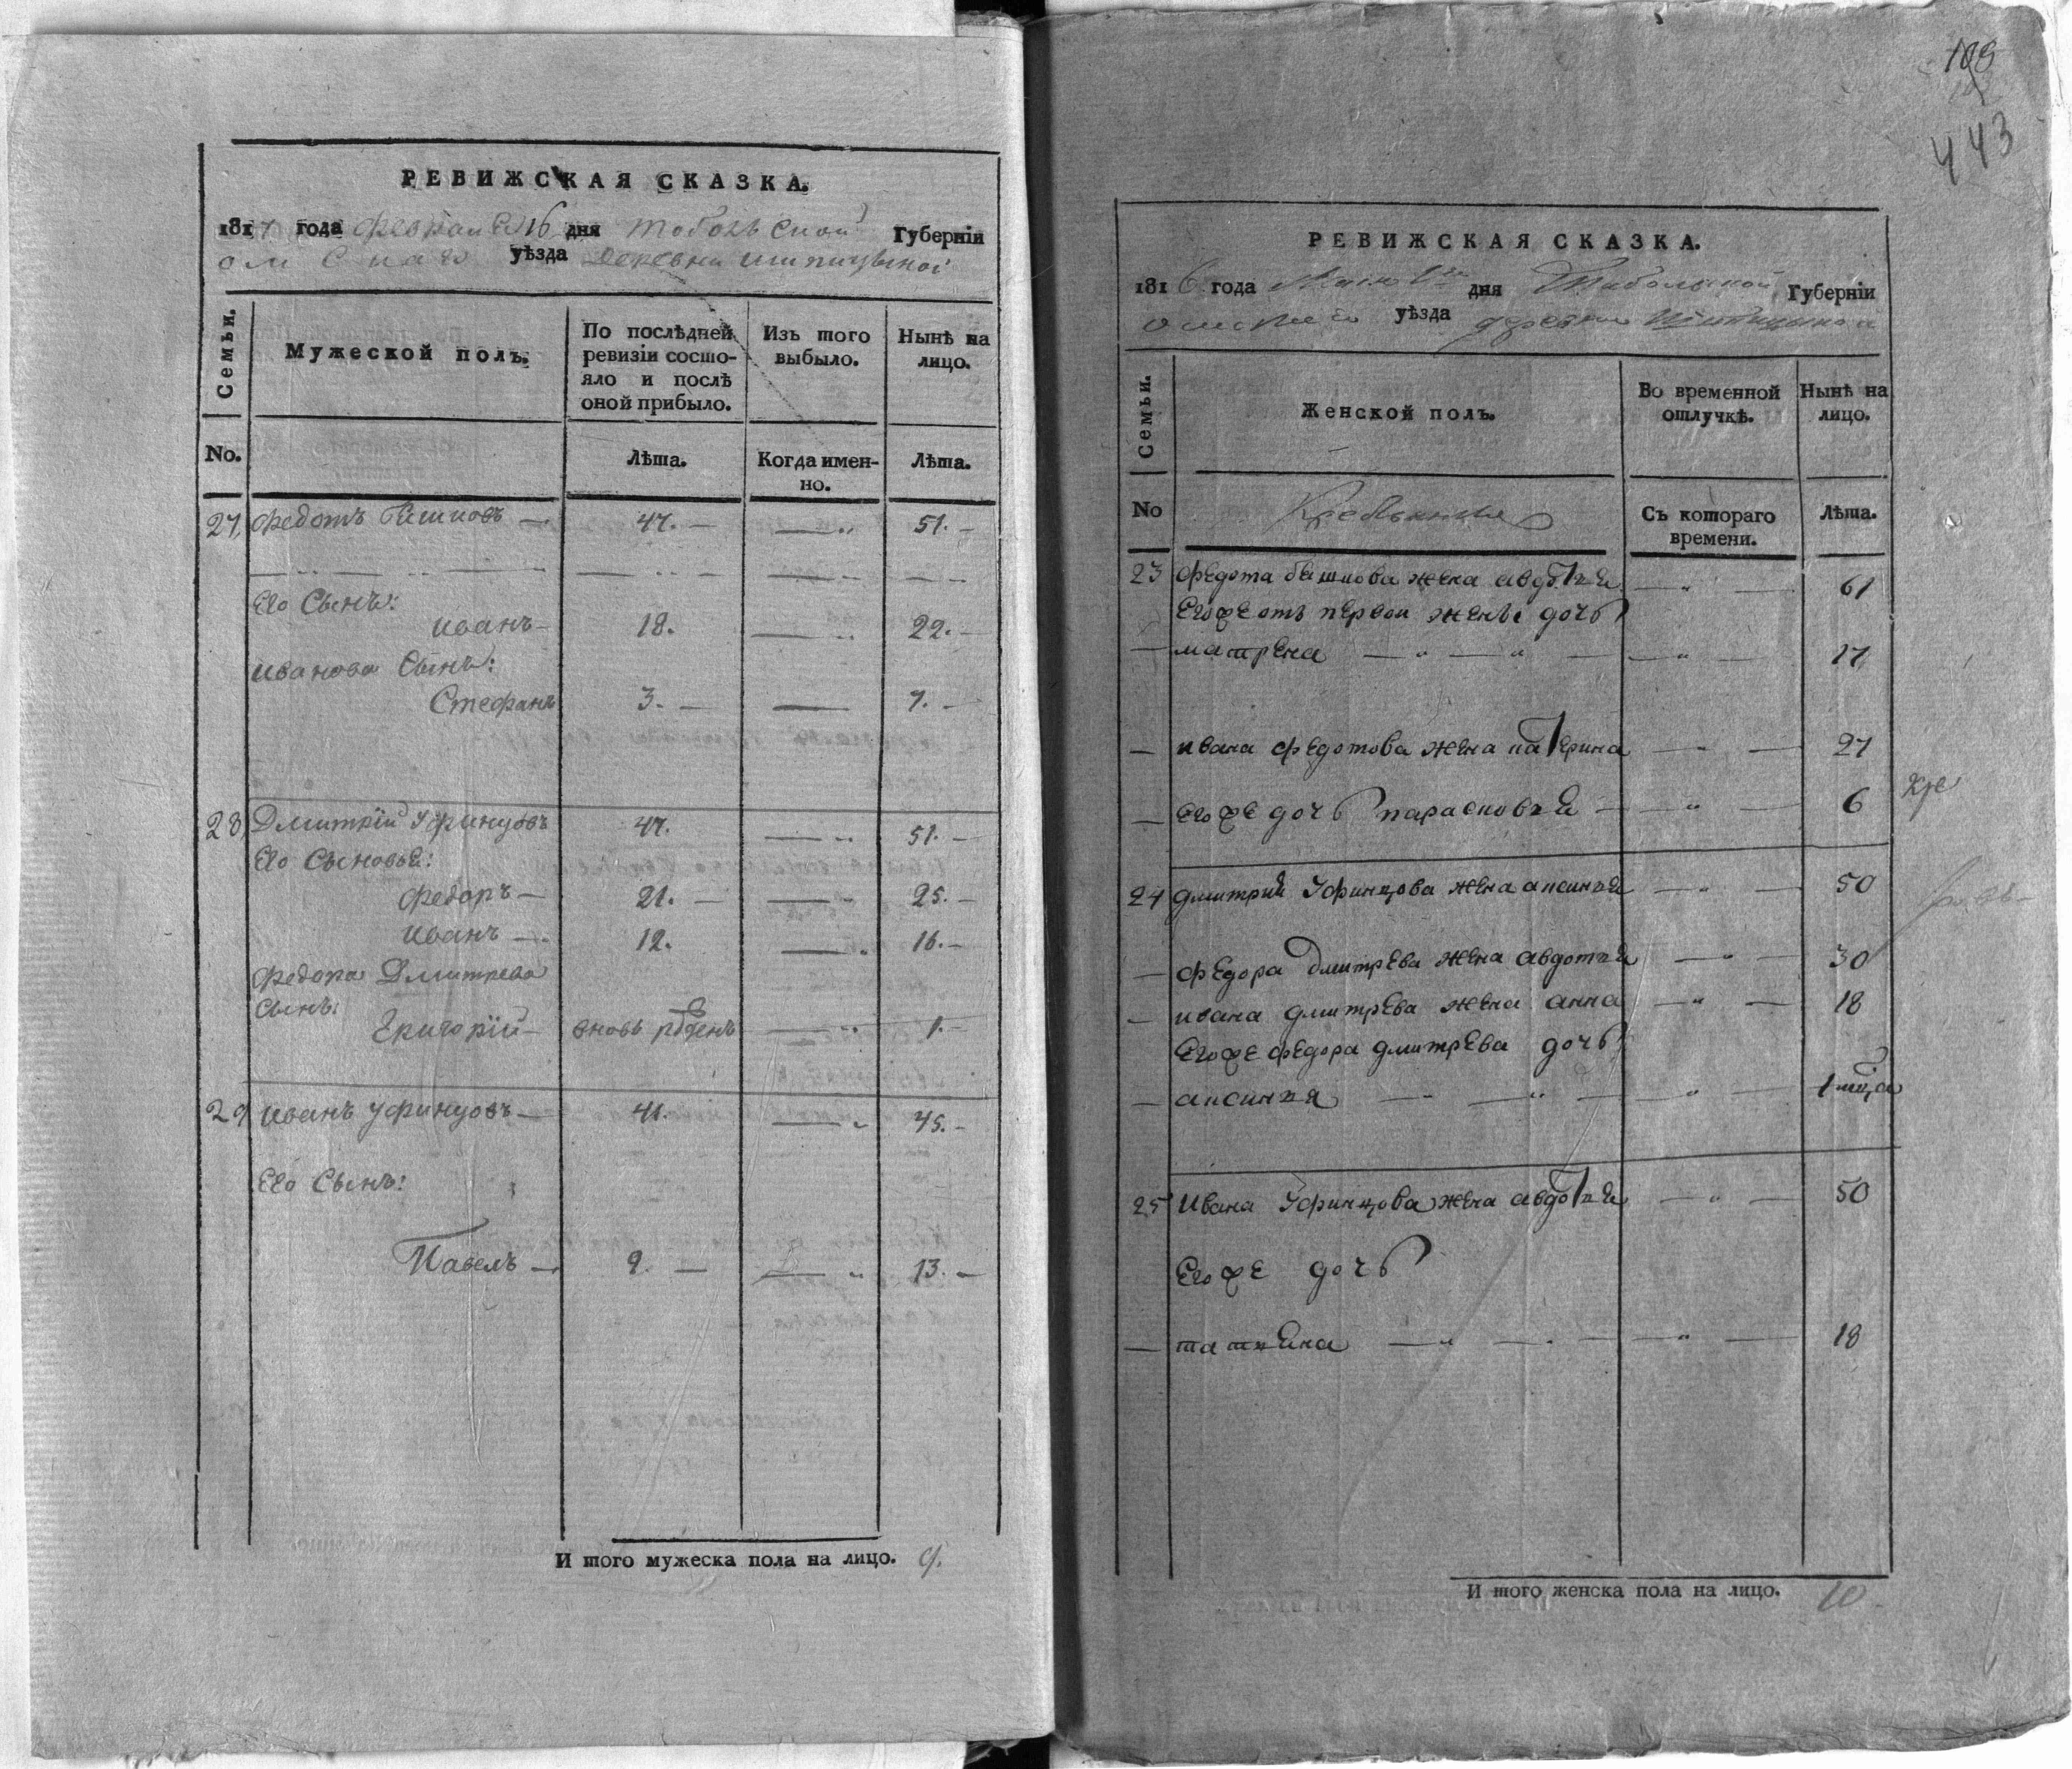 РЕВИЖСКАЯ СКАЗКА.
181 года 16 дня Тобольской Губерніи
омскаго уѣзда Деревни шипицыной
Семьи.
Мужеской полъ.
По послѣдней ревизіи состо-
яло и послѣ
оной прибыло.
Изъ того
выбыло.
Нынѣ на
лицо.
No.
Лѣта.
Когда имен-
но.
Лѣта.
27, Федотъ — 47. — — „ 51. —
Его Сынъ:
иванъ — 18. — „ 22. —
иванова Сынъ:
Стефанъ 3. — — 7. —
28, Дмитрій Уфинцовъ 47. — „ 51. —
Его Сыновья:
Федоръ — 21. — — „ 25. —
иванъ — 12. — „ 16. —
Федора Дмитрева
Сынъ:
Григорій — вновь рожденъ — „ 1. —
29 иванъ уфинцовъ — 41. — „ 45. —
Его Сынъ:
Павелъ — 9. — — „ 13. —
И того мужеска пола на лицо. 9.
108
443
РЕВИЖСКАЯ СКАЗКА.
1816 года Маія дня Тобольской Губерніи
омскаго уѣзда деревни Шипицыной
Семьи.
Женской полъ.
Во временной
отлучкѣ.
Нынѣ на
лицо.
No
Съ котораго
времени.
Лѣта.
23 Федота бышкова жена авдотья — „ — 61
Егоже отъ первой жены дочь
— матрена — „ — „ — — „ — 17
— ивана федотова жена катерина — „ — 27
— Егоже дочь парасковья — — „ — 6
24 дмитрия Уфинцова жена аксинья — „ — 50
— федора дмитрева жена авдотья — „ — 30
— ивана дмитрева жена анна — „ — 18
Егоже федора дмитрева дочь
— аксинья — — „ — — „ — 1 мца
25 Ивана Уфинцова жена авдотья — „ — 50
Егоже дочь
— татьяна — „ — „ — — „ — 18
И того женска пола на лицо. 10.